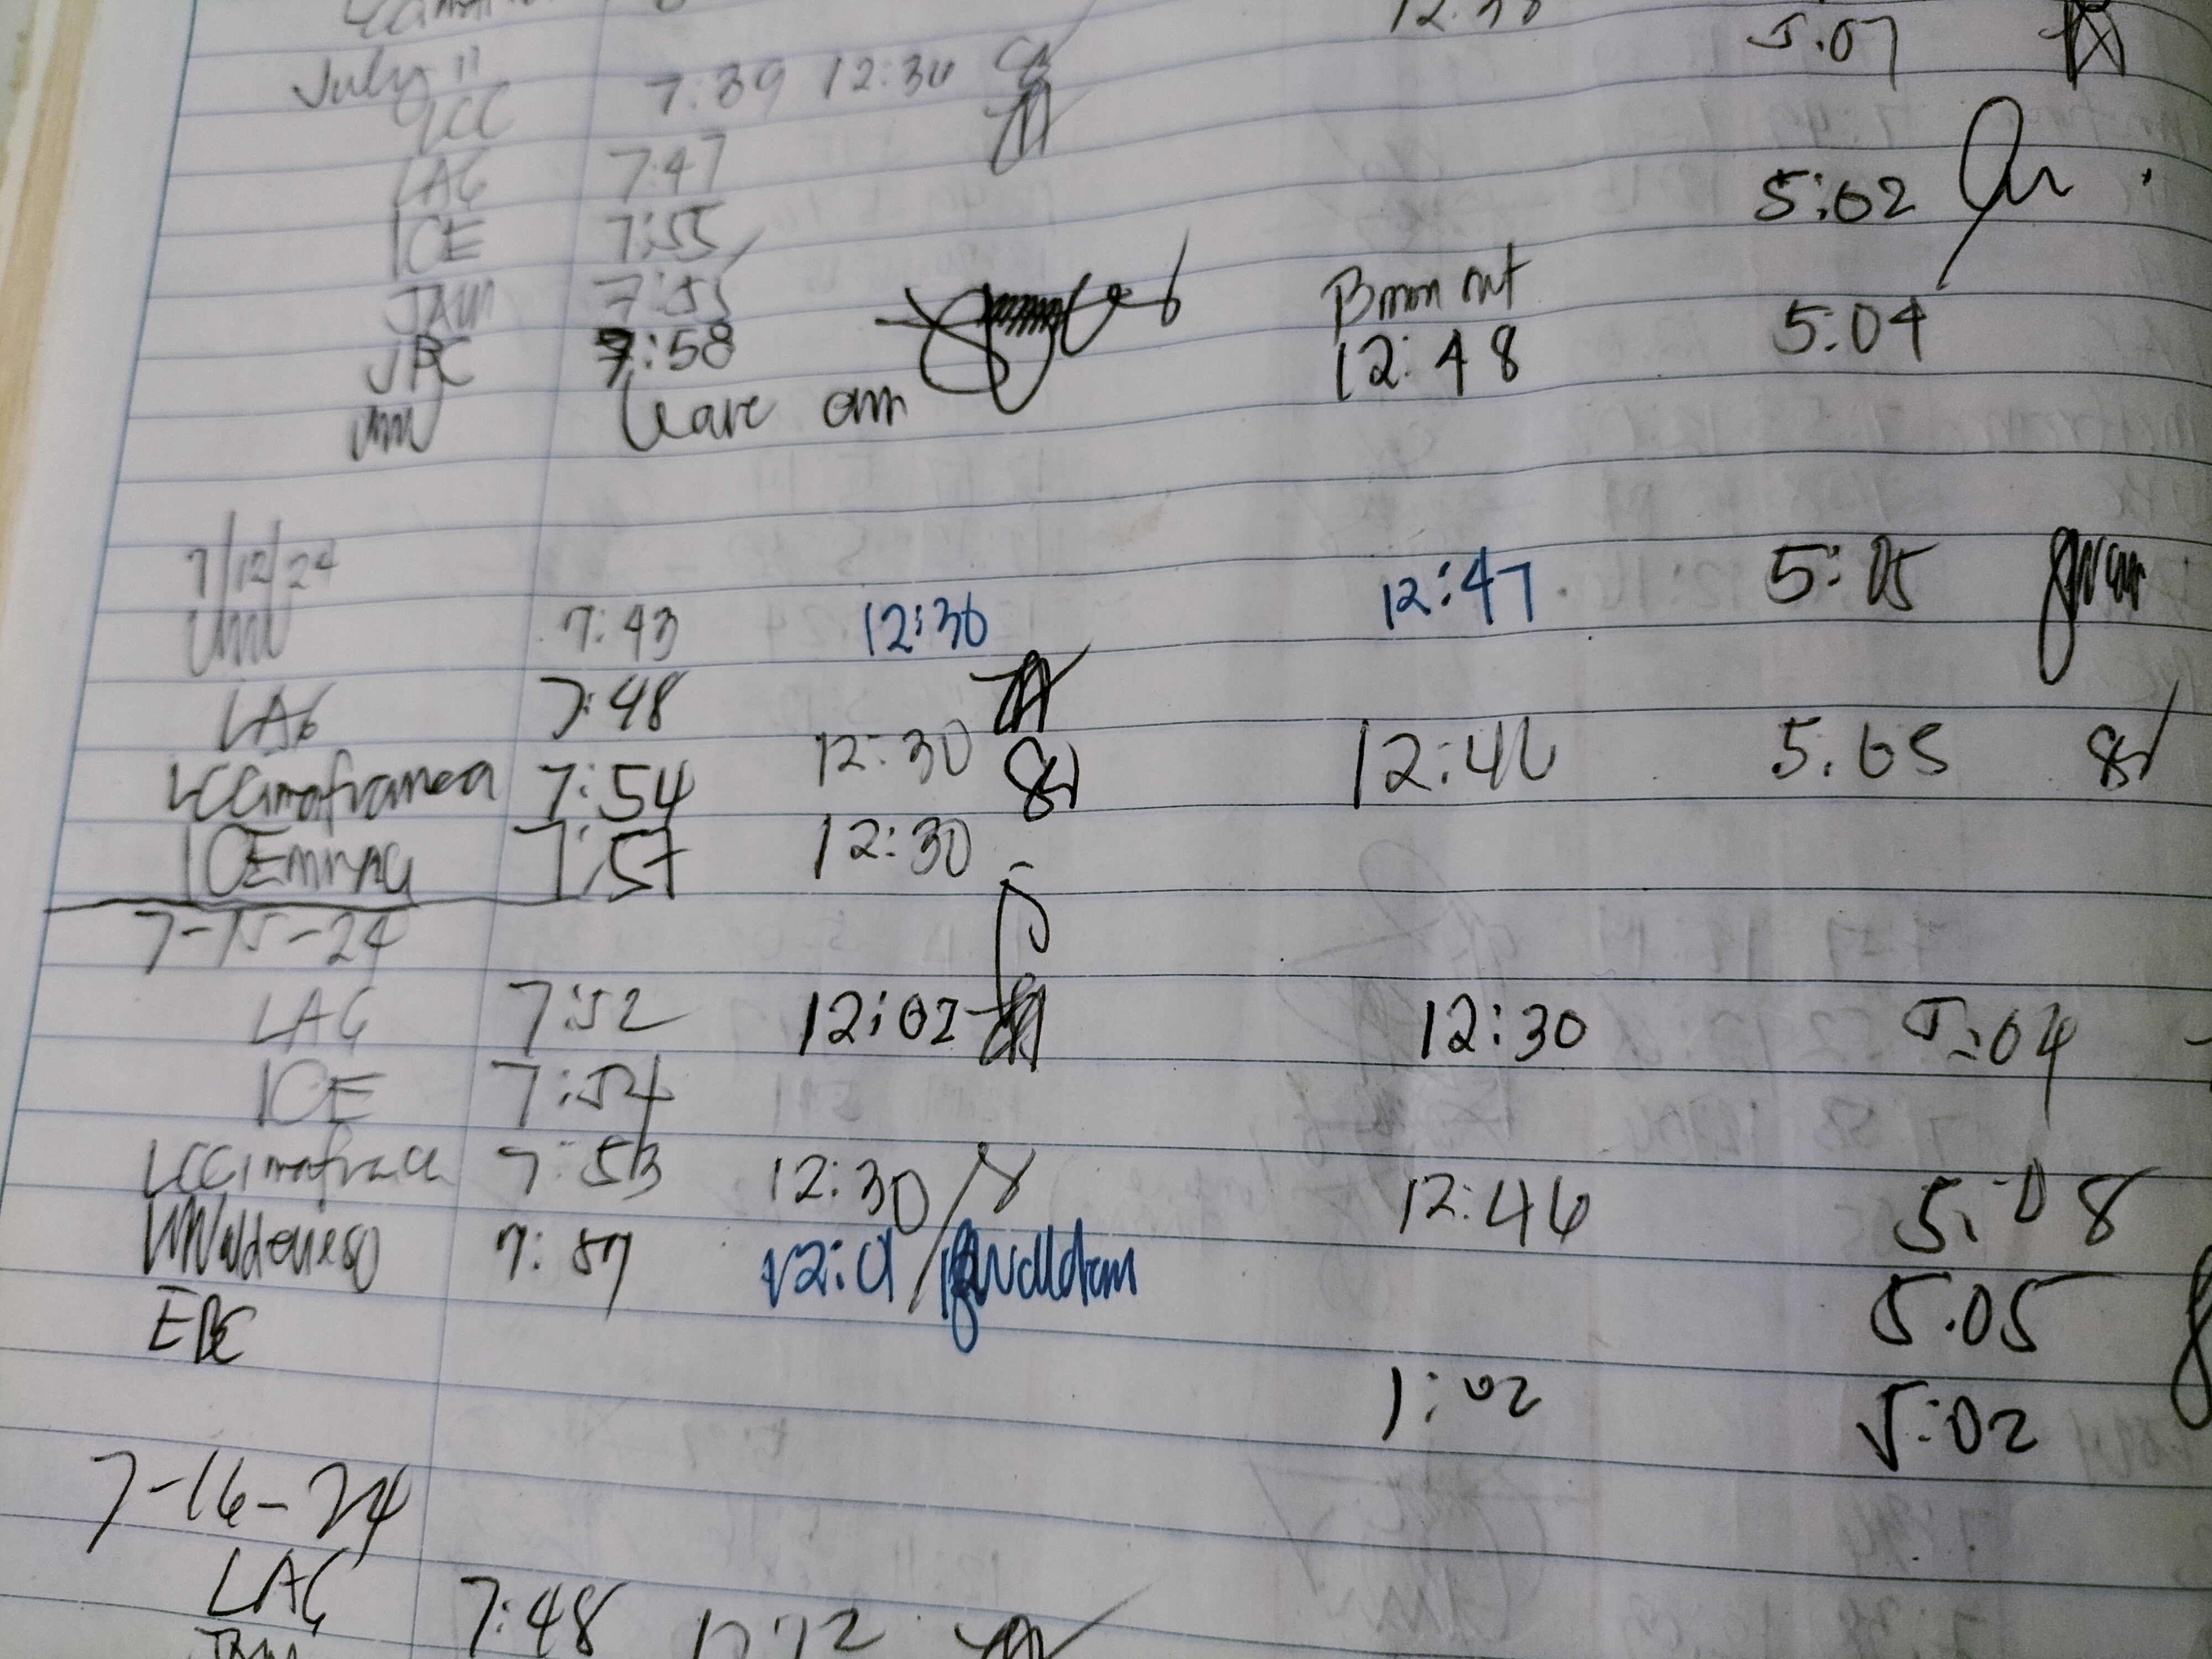 July 11
LCC 7:39 12:30 5:07
LAG 7:47
ICE 7:55 5:02
JAM 7:55
JPC 7:58 12:48 5:04
leave am
7/12/24
7:43 12:36 12:47 5:05
LAG 7:48
LCCimafranca 7:54 12:30 12:46 5.05
ICE 7:57 12:30
7-15-24
LAG 7:52 12:02 12:30 5:04
ICE 7:54
LCCimafranca 7:53 12:30 12:46 5:08
7:57 12:01 5.05
EBC 1:02 5:02
7-16-24
LAG 7:48 12:12